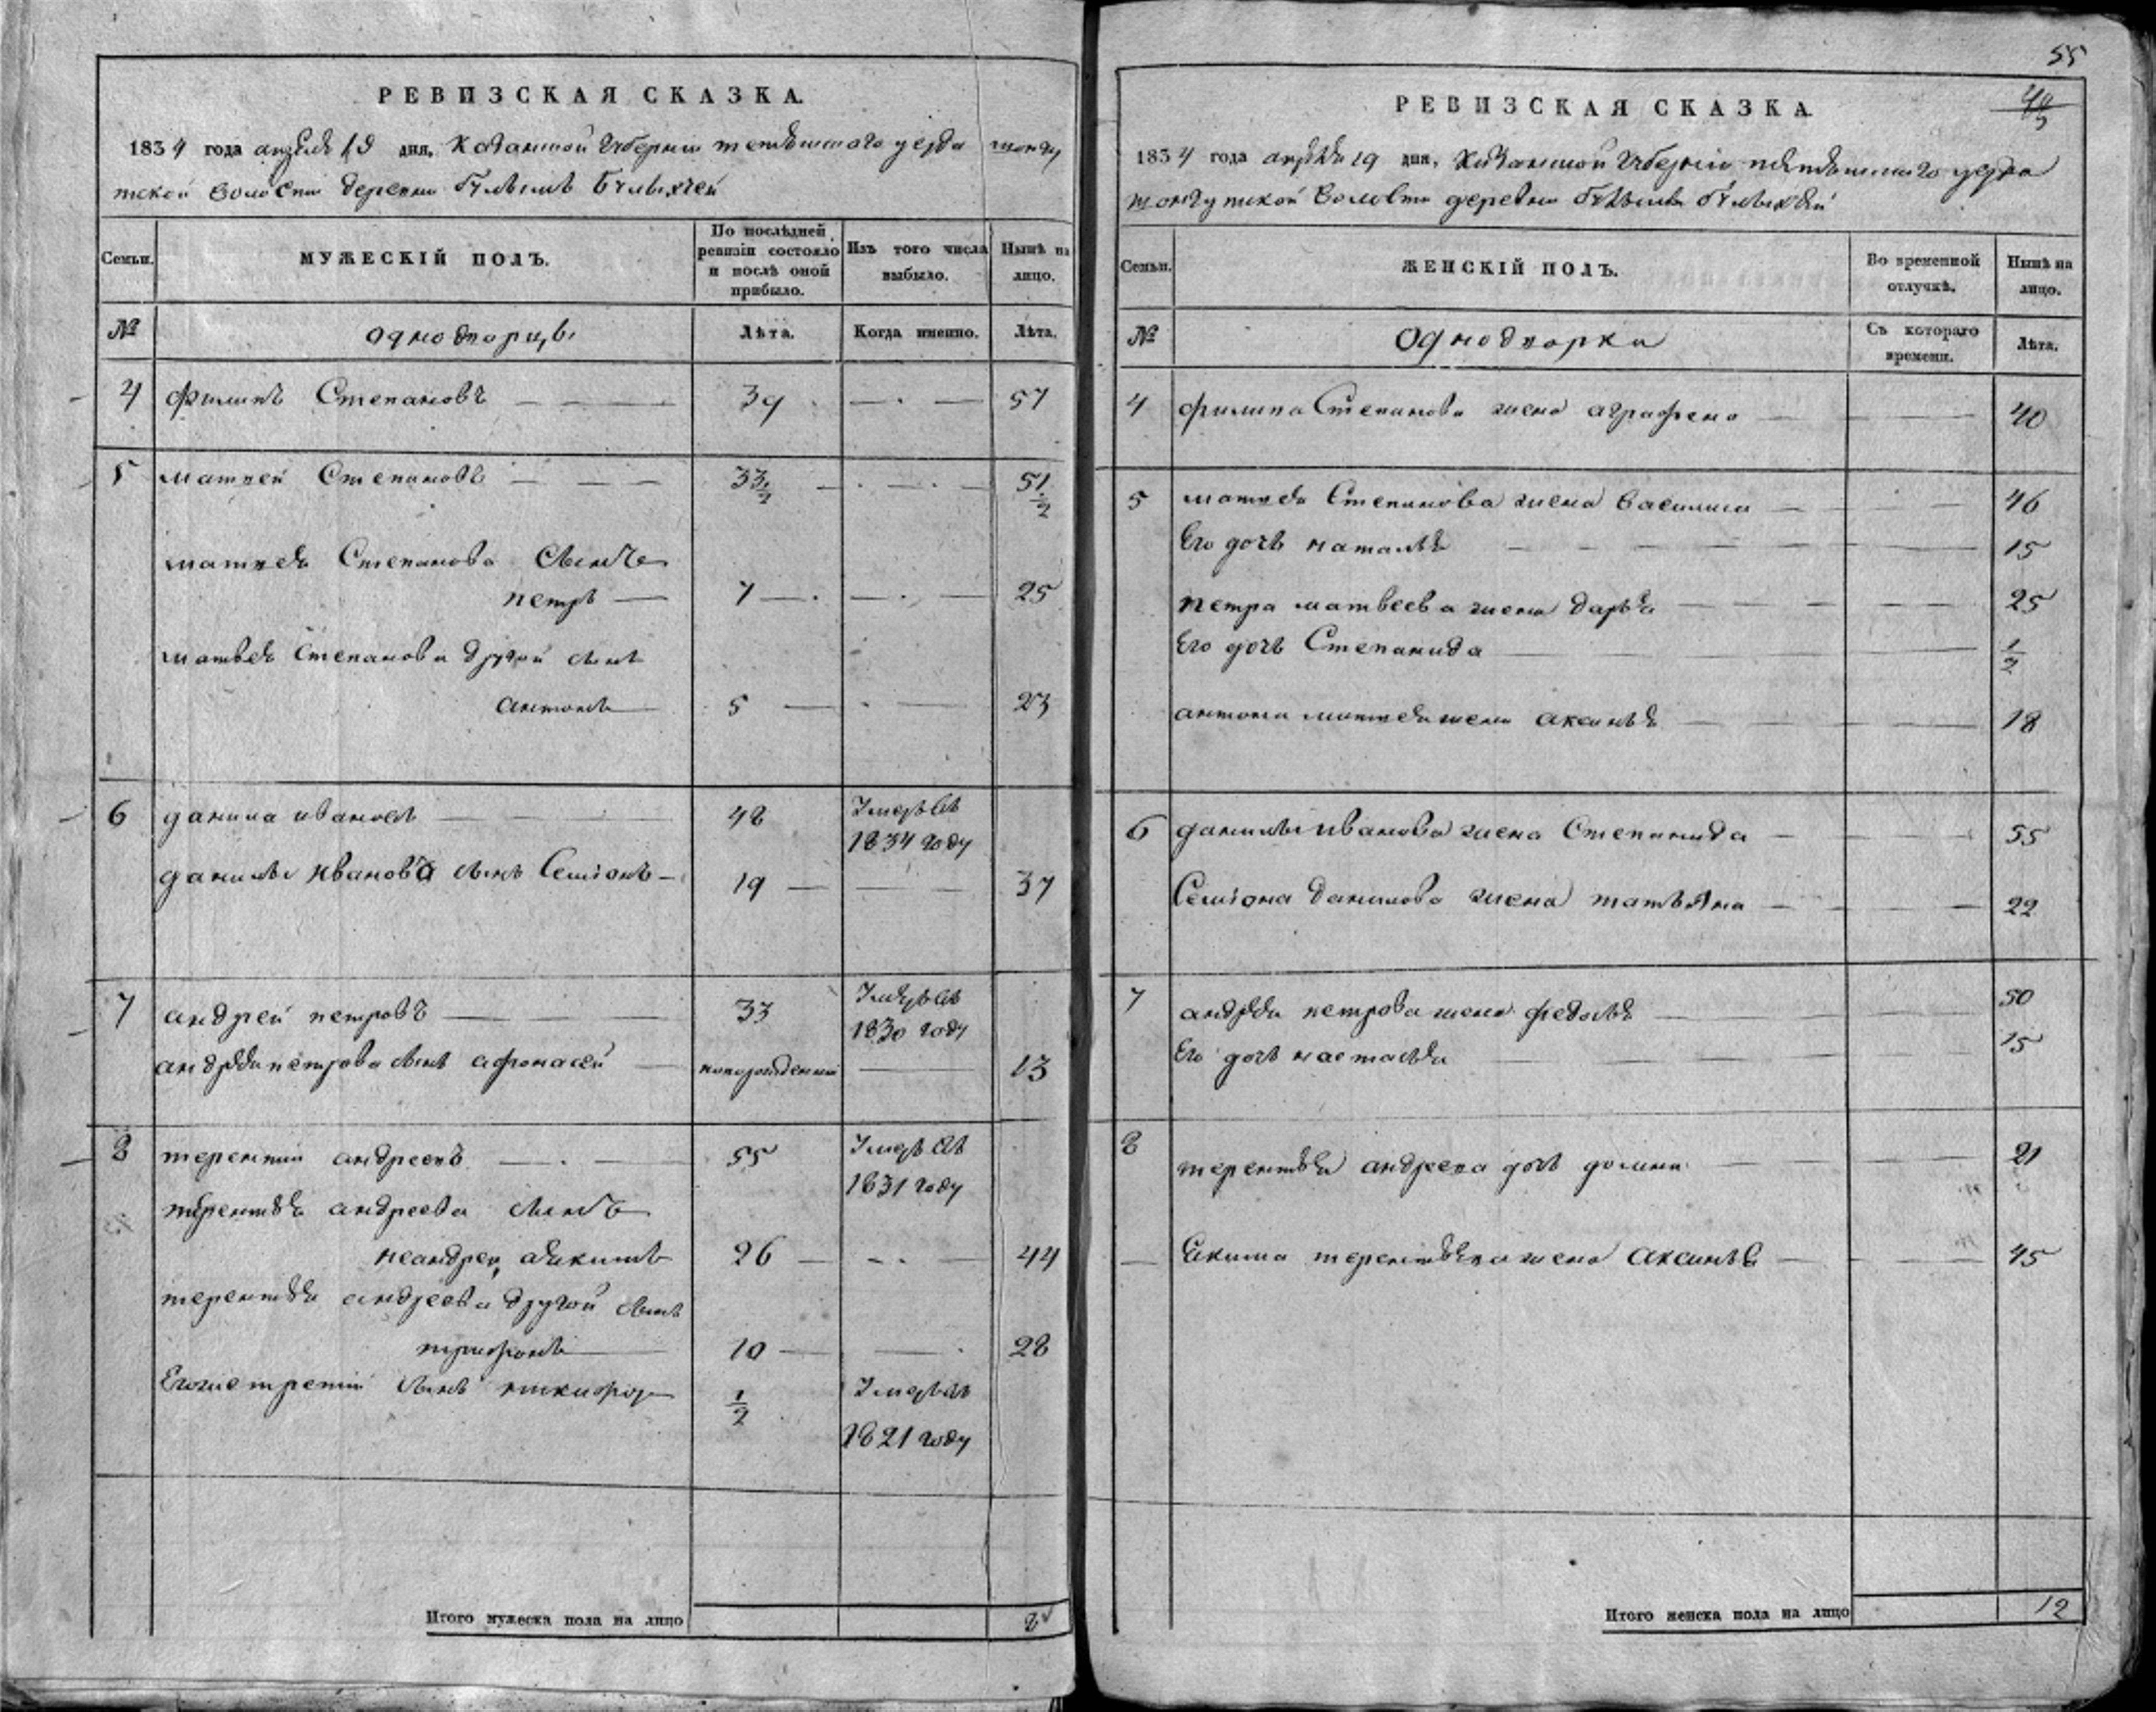 РЕВИЗСКАЯ СКАЗКА.
1834 года апреля 19 дня, Казанской Губернии тетюшского уезда шонгу
тской волости деревни
Семьи.
МУЖЕСКІЙ ПОЛЪ.
По послѣдней ревизіи состояло и послѣ оной прибыло.
Изъ того числа выбыло.
Нынѣ на лицо.
№
однодворцы
Лѣта.
Когда именно.
Лѣта.
4 филипъ Степановъ 39 57
5 матвей Степановъ 33 1/2 51 1/2
матвея Степанова сынъ
петръ 7 25
матвея Степанова другой сынъ
антонъ 5 23
6 данила ивановъ 48 Умеръ въ
1834 году
данилы иванова сынъ Семіонъ 19 37
7 андрей петровъ 33 Умеръ въ
1830 году
андрея петрова сынъ афонасей новорожденной 13
8 терентий андреевъ 55 Умеръ въ
1831 году
терентья андреева сынъ
неандрей, а екимъ 26 44
терентья андреева другой сынъ
трифонъ 10 28
Егоже третий сынъ никифор 1/2 Умеръ въ
1821 году
Итого мужеска пола на лицо 8
55
РЕВИЗСКАЯ СКАЗКА.
1834 года апреля 19 дня, Казанской Губернии тетюшского уезда
шонгутской волости деревни
Семьи.
ЖЕНСКІЙ ПОЛЪ.
Во временной отлучкѣ.
Нынѣ на лицо.
№
Однодворки
Съ котораго времени.
Лѣта.
4 филипа Степанова жена аграфена 40
5 матвея Степанова жена василиса 46
Его дочь наталья 15
петра матвеева жена дарья 25
Его дочь Степанида 1/2
антона матвея жена аксинья 18
6 данилы иванова жена Степанида 55
Семіона данилова жена татьяна 22
7 андрея петрова жена федосья 50
Его дочь настасья 15
8 терентья андреева дочь домна 21
Екима терентьева жена аксинья 45
Итого женска пола на лицо 12